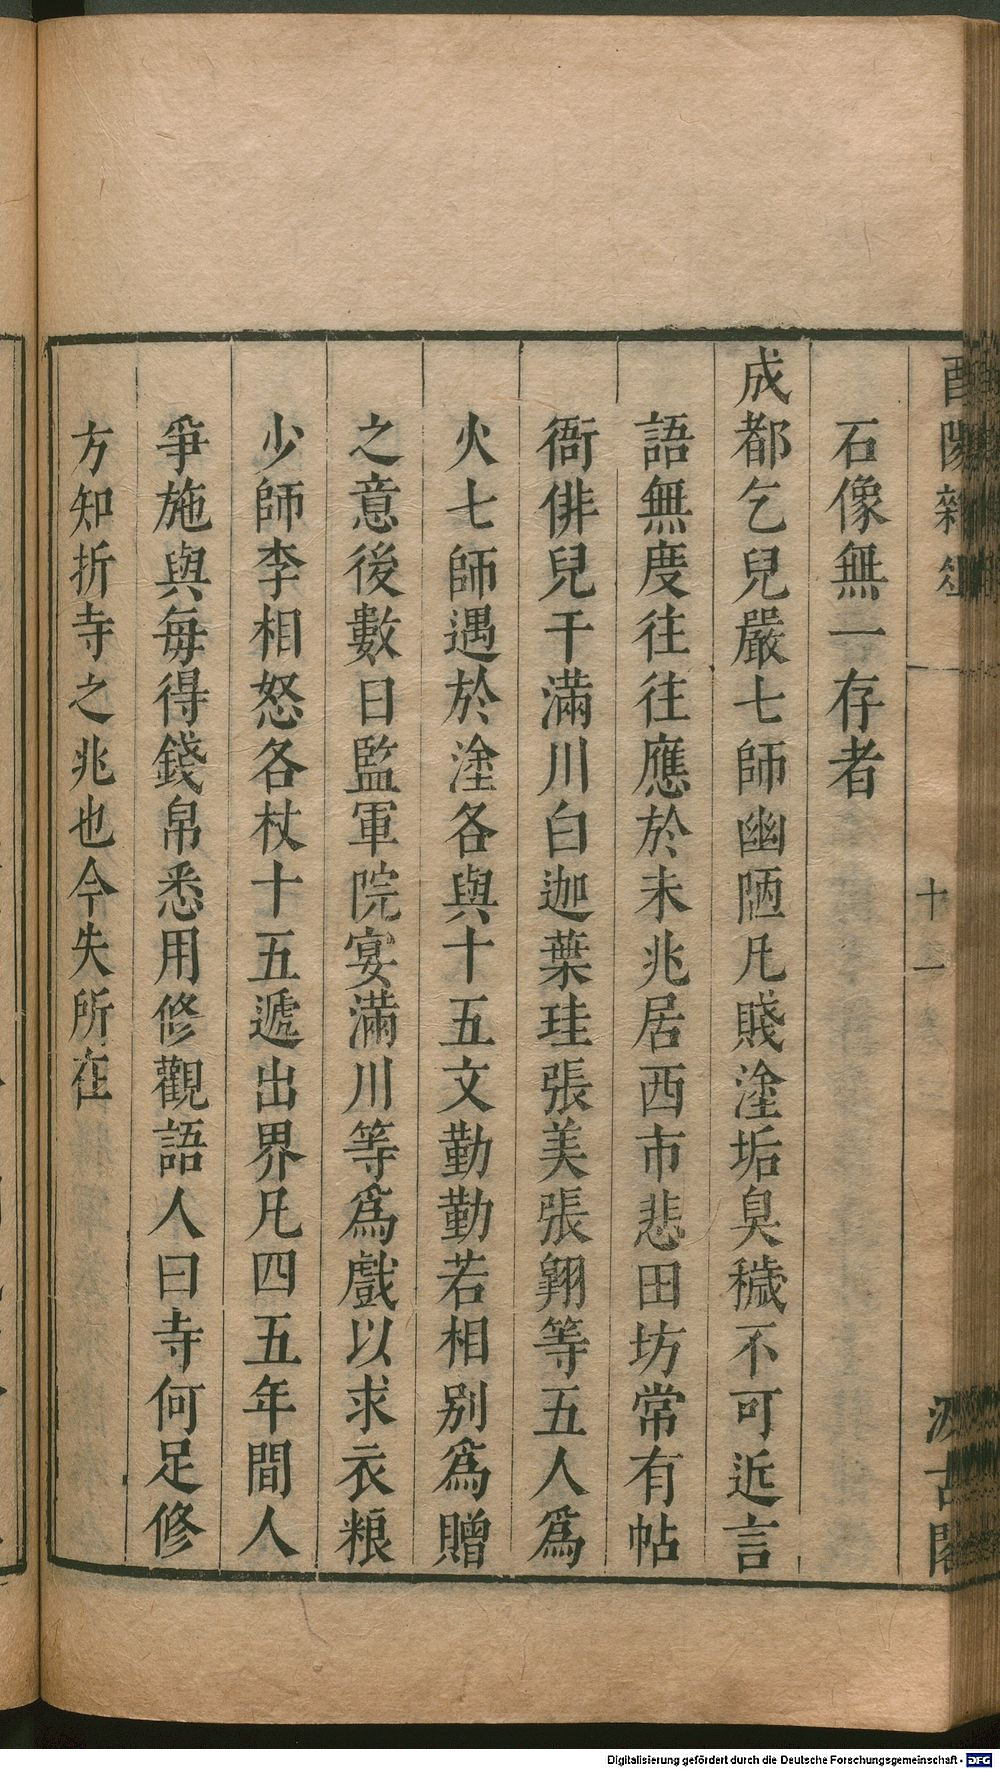 酉陽雜俎
十一
汲古閣
石像無一存者
成都乞兒嚴七師幽陋凡賤塗垢臭穢不可近言
語無度往往應於未兆居西市悲田坊常有帖
衙俳兒干滿川白迦葉珪張美張翱等五人爲
火七師遇於塗各與十五文勤勤若相別爲贈
之意後數日監軍院宴滿川等爲戲以求衣粮
少師李相怒各杖十五遞出界凡四五年間人
爭施與每得錢帛悉用修觀語人曰寺何足修
方知折寺之兆也今失所在
Digitalisierung gefördert durch die Deutsche Forschungsgemeinschaft - DFG